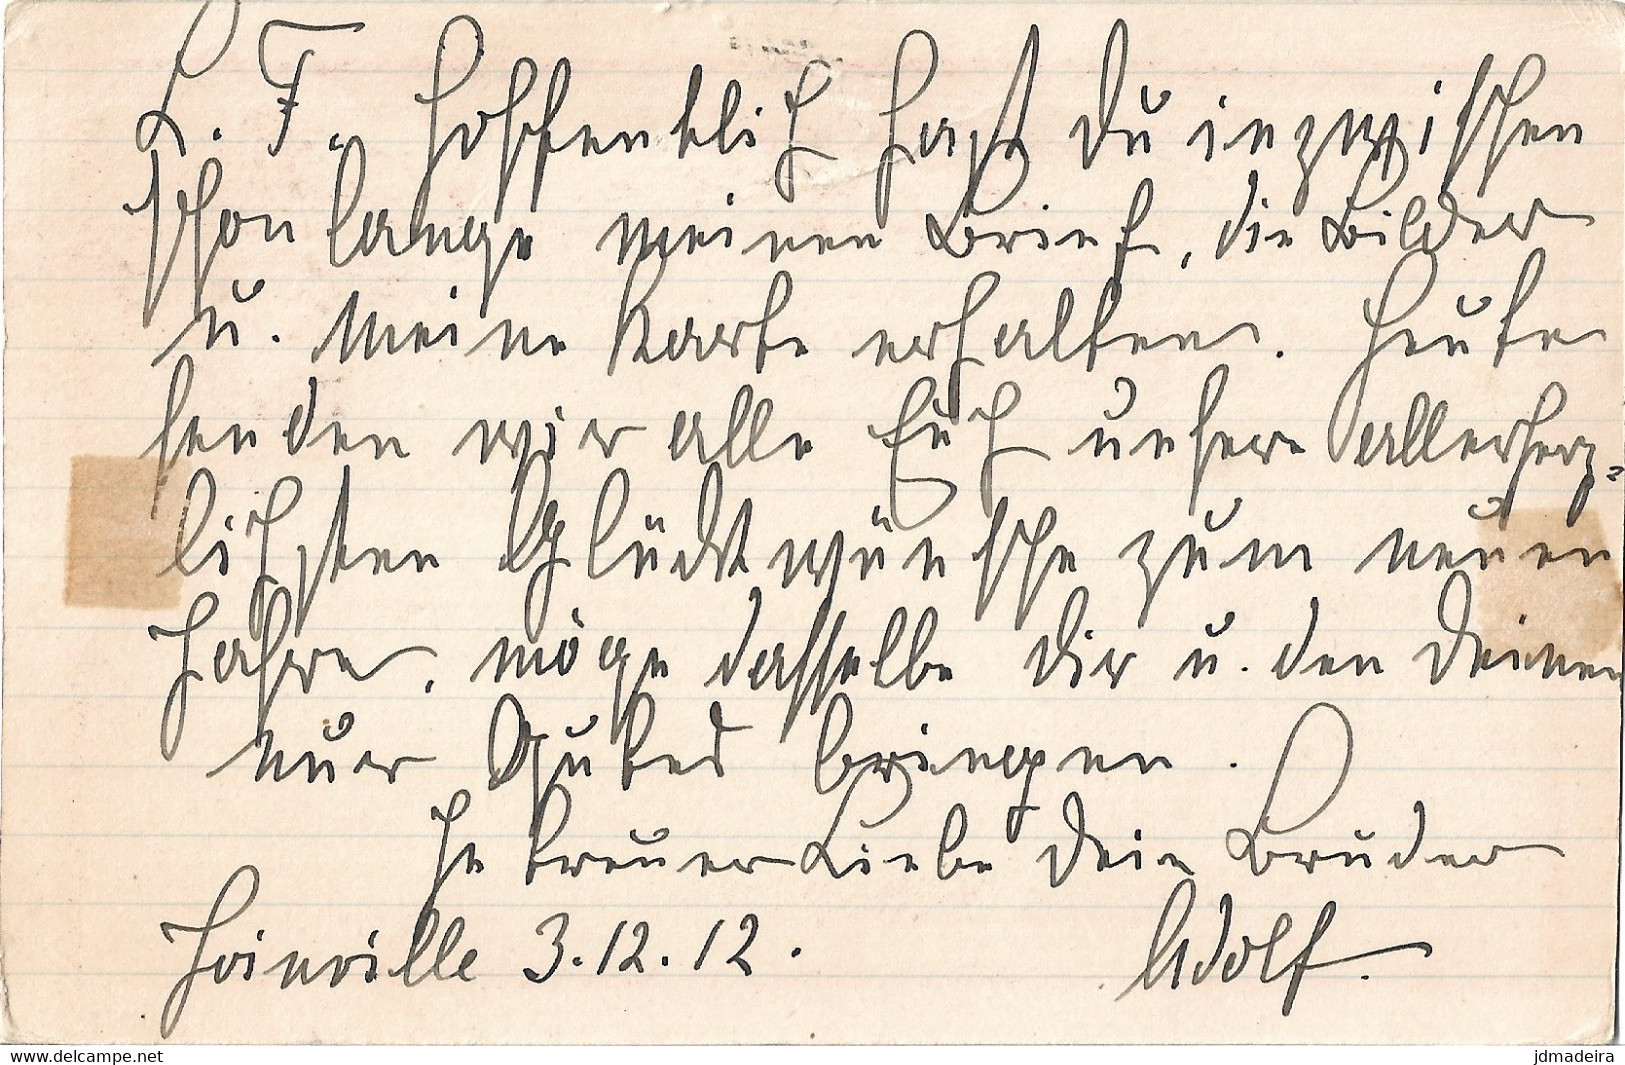 L. F. Hoffentlich hast Du inzwischen
schon lange meinen Brief, die Bilder
u. meine Karte erhalten. Heute
senden wir alle Euch unsere allerherz-
lichsten Glückwünsche zum neuen
Jahre, möge dasselbe Dir u. den Deinen
nur Gutes bringen.
In treuer Liebe Dein Bruder
Joinville 3.12.12. Adolf.
www.delcampe.net
jdmadeira